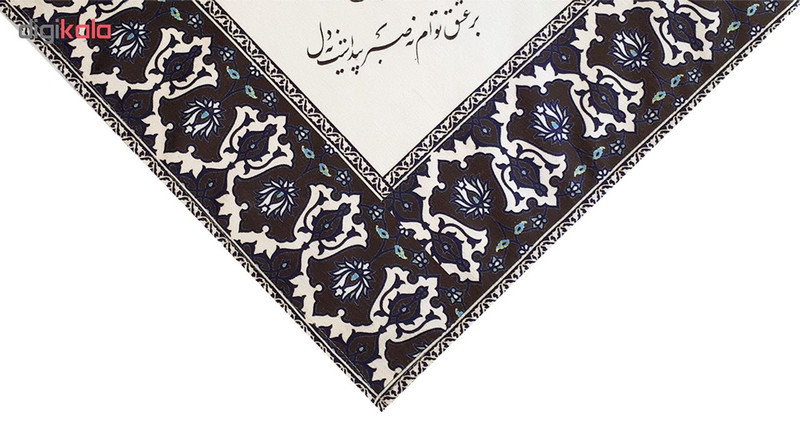 digikala
بر عشق توام نه صبر پیداست نه دل